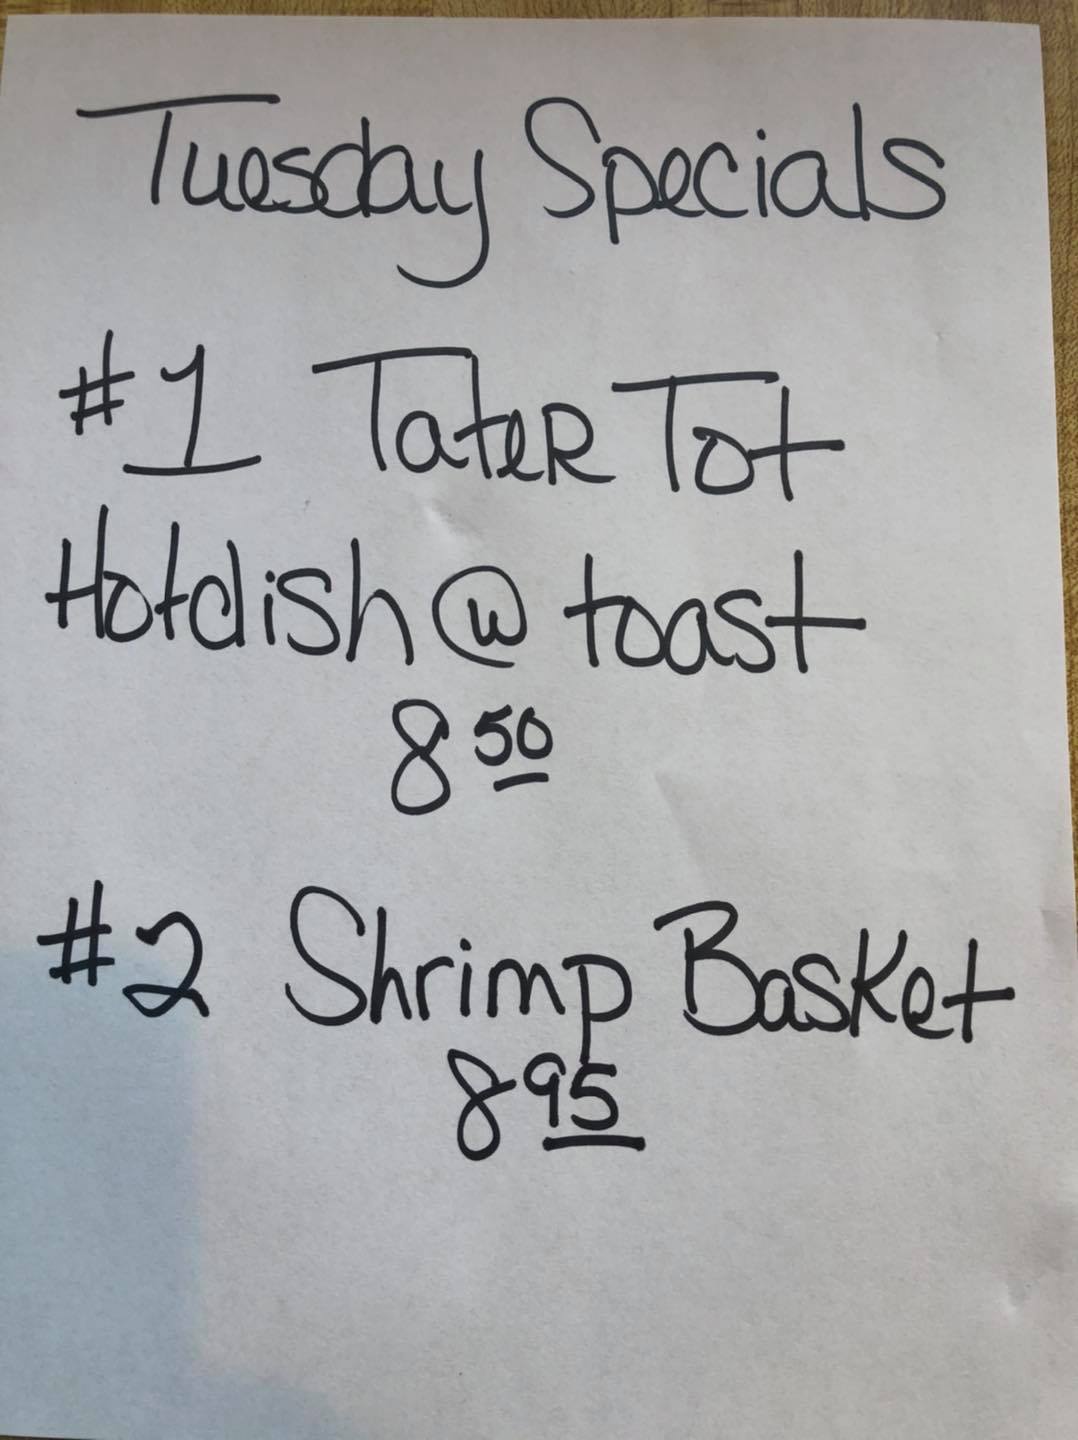 Tuesday Specials
#1 Tater Tot
Hotdish ⓦ toast
8 50
#2 Shrimp Basket
8 95